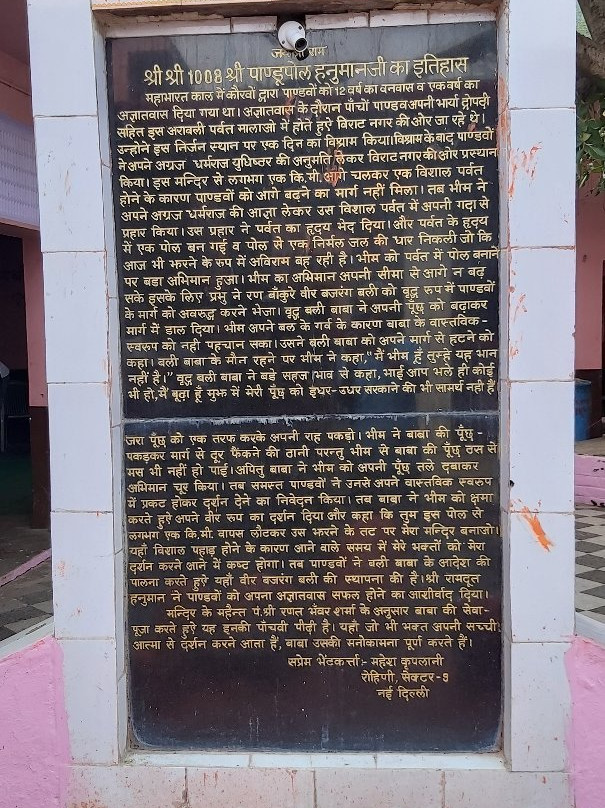 ज राम
श्री श्री 1008 श्री पाण्डूपोल हनुमानजी का इतिहास
महाभारत काल में कौरवों द्वारा पाण्डवों को 12 वर्ष का वनवास व एक वर्ष का
अज्ञातवास दिया गया था। अज्ञातवास के दौरान पाँचों पाण्डव अपनी भार्या द्रोपदी
सहित इस अरावली पर्वत मालाओ में होते हुऐ विराट नगर की ओर जा रहे थे।
उन्होने इस निर्जन स्थान पर एक दिन का विश्राम किया। विश्राम के बाद पाण्डवों
ने अपने अग्रज धर्मराज युधिष्टर की अनुमति लेकर विराट नगर की ओर प्रस्थान
किया। इस मन्दिर से लगभग एक कि.मी. आगे चलकर एक विशाल पर्वत
होने के कारण पाण्डवों को आगे बढ़ने का मार्ग नहीं मिला। तब भीम ने
अपने अग्रज धर्मराज की आज्ञा लेकर उस विशाल पर्वत में अपनी गदा से
प्रहार किया। उस प्रहार ने पर्वत का हृदय भेद दिया। और पर्वत के हृदय
में एक पोल बन गई व पोल से एक निर्मल जल की धार निकली जो कि
आज भी झरने के रूप में अविराम बह रही है। भीम को पर्वत में पोल बनाने
पर बडा अभिमान हुआ। भीम का अभिमान अपनी सीमा से आगे न बढ़
सके इसके लिए प्रभु ने रण बाँकुरे वीर बजरंग बली को वृद्ध रूप में पाण्डवों
के मार्ग को अवरुद्ध करने भेजा। वृद्ध बली बाबा ने अपनी पूँछ को बढ़ाकर
मार्ग में डाल दिया। भीम अपने बल के गर्व के कारण बाबा के वास्तविक-
स्वरूप को नही पहचान सका। उसने बली बाबा को अपने मार्ग से हटने को
कहा। बली बाबा के मौन रहने पर भीम ने कहा," मैं भीम हूँ तुम्हे यह भान
नहीं है।" वृद्ध बली बाबा ने बडे सहज भाव से कहा, भाई आप भले ही कोई
भी हो, मैं बूढ़ा हूँ मुझ में मेरी पूँछ को इधर-उधर सरकाने की भी सामर्थ नही हैं
जरा पूँछ को एक तरफ करके अपनी राह पकड़ो। भीम ने बाबा की पूँछ
पकड़कर मार्ग से दूर फैंकने की ठानी परन्तु भीम से बाबा की पूँछ ठस से
मस भी नहीं हो पाई। अपितु बाबा ने भीम को अपनी पूँछ तले दबाकर
अभिमान चूर किया। तब समस्त पाण्डवों ने उनसे अपने वास्तविक स्वरूप
में प्रकट होकर दर्शन देने का निवेदन किया। तब बाबा ने भीम को क्षमा
करते हुऐ अपने वीर रूप का दर्शन दिया और कहा कि तुम इस पोल से
लगभग एक कि.मी. वापस लौटकर उस झरने के तट पर मेरा मन्दिर बनाओ।
यहाँ विशाल पहाड़ होने के कारण आने वाले समय में मेरे भक्तों को मेरा
दर्शन करने आने में कष्ट होगा। तब पाण्डवों ने बली बाबा के आदेश की
पालना करते हुऐ यहाँ वीर बजरंग बली की स्थापना की है। श्री रामदूत
हनुमान ने पाण्डवों को अपना अज्ञातवास सफल होने का आशीर्वाद दिया।
मन्दिर के महन्त पं.श्री रणत भंवर शर्मा के अनुसार बाबा की सेवा-
पूजा करते हुऐ यह इनकी पाँचवी पीढ़ी है। यहाँ जो भी भक्त अपनी सच्ची
आत्मा से दर्शन करने आता हैं, बाबा उसकी मनोकामना पूर्ण करते हैं।
सप्रेम भेंटकर्त्ता:- महेश कृपलानी
रोहिणी, सेक्टर-9
नई दिल्ली